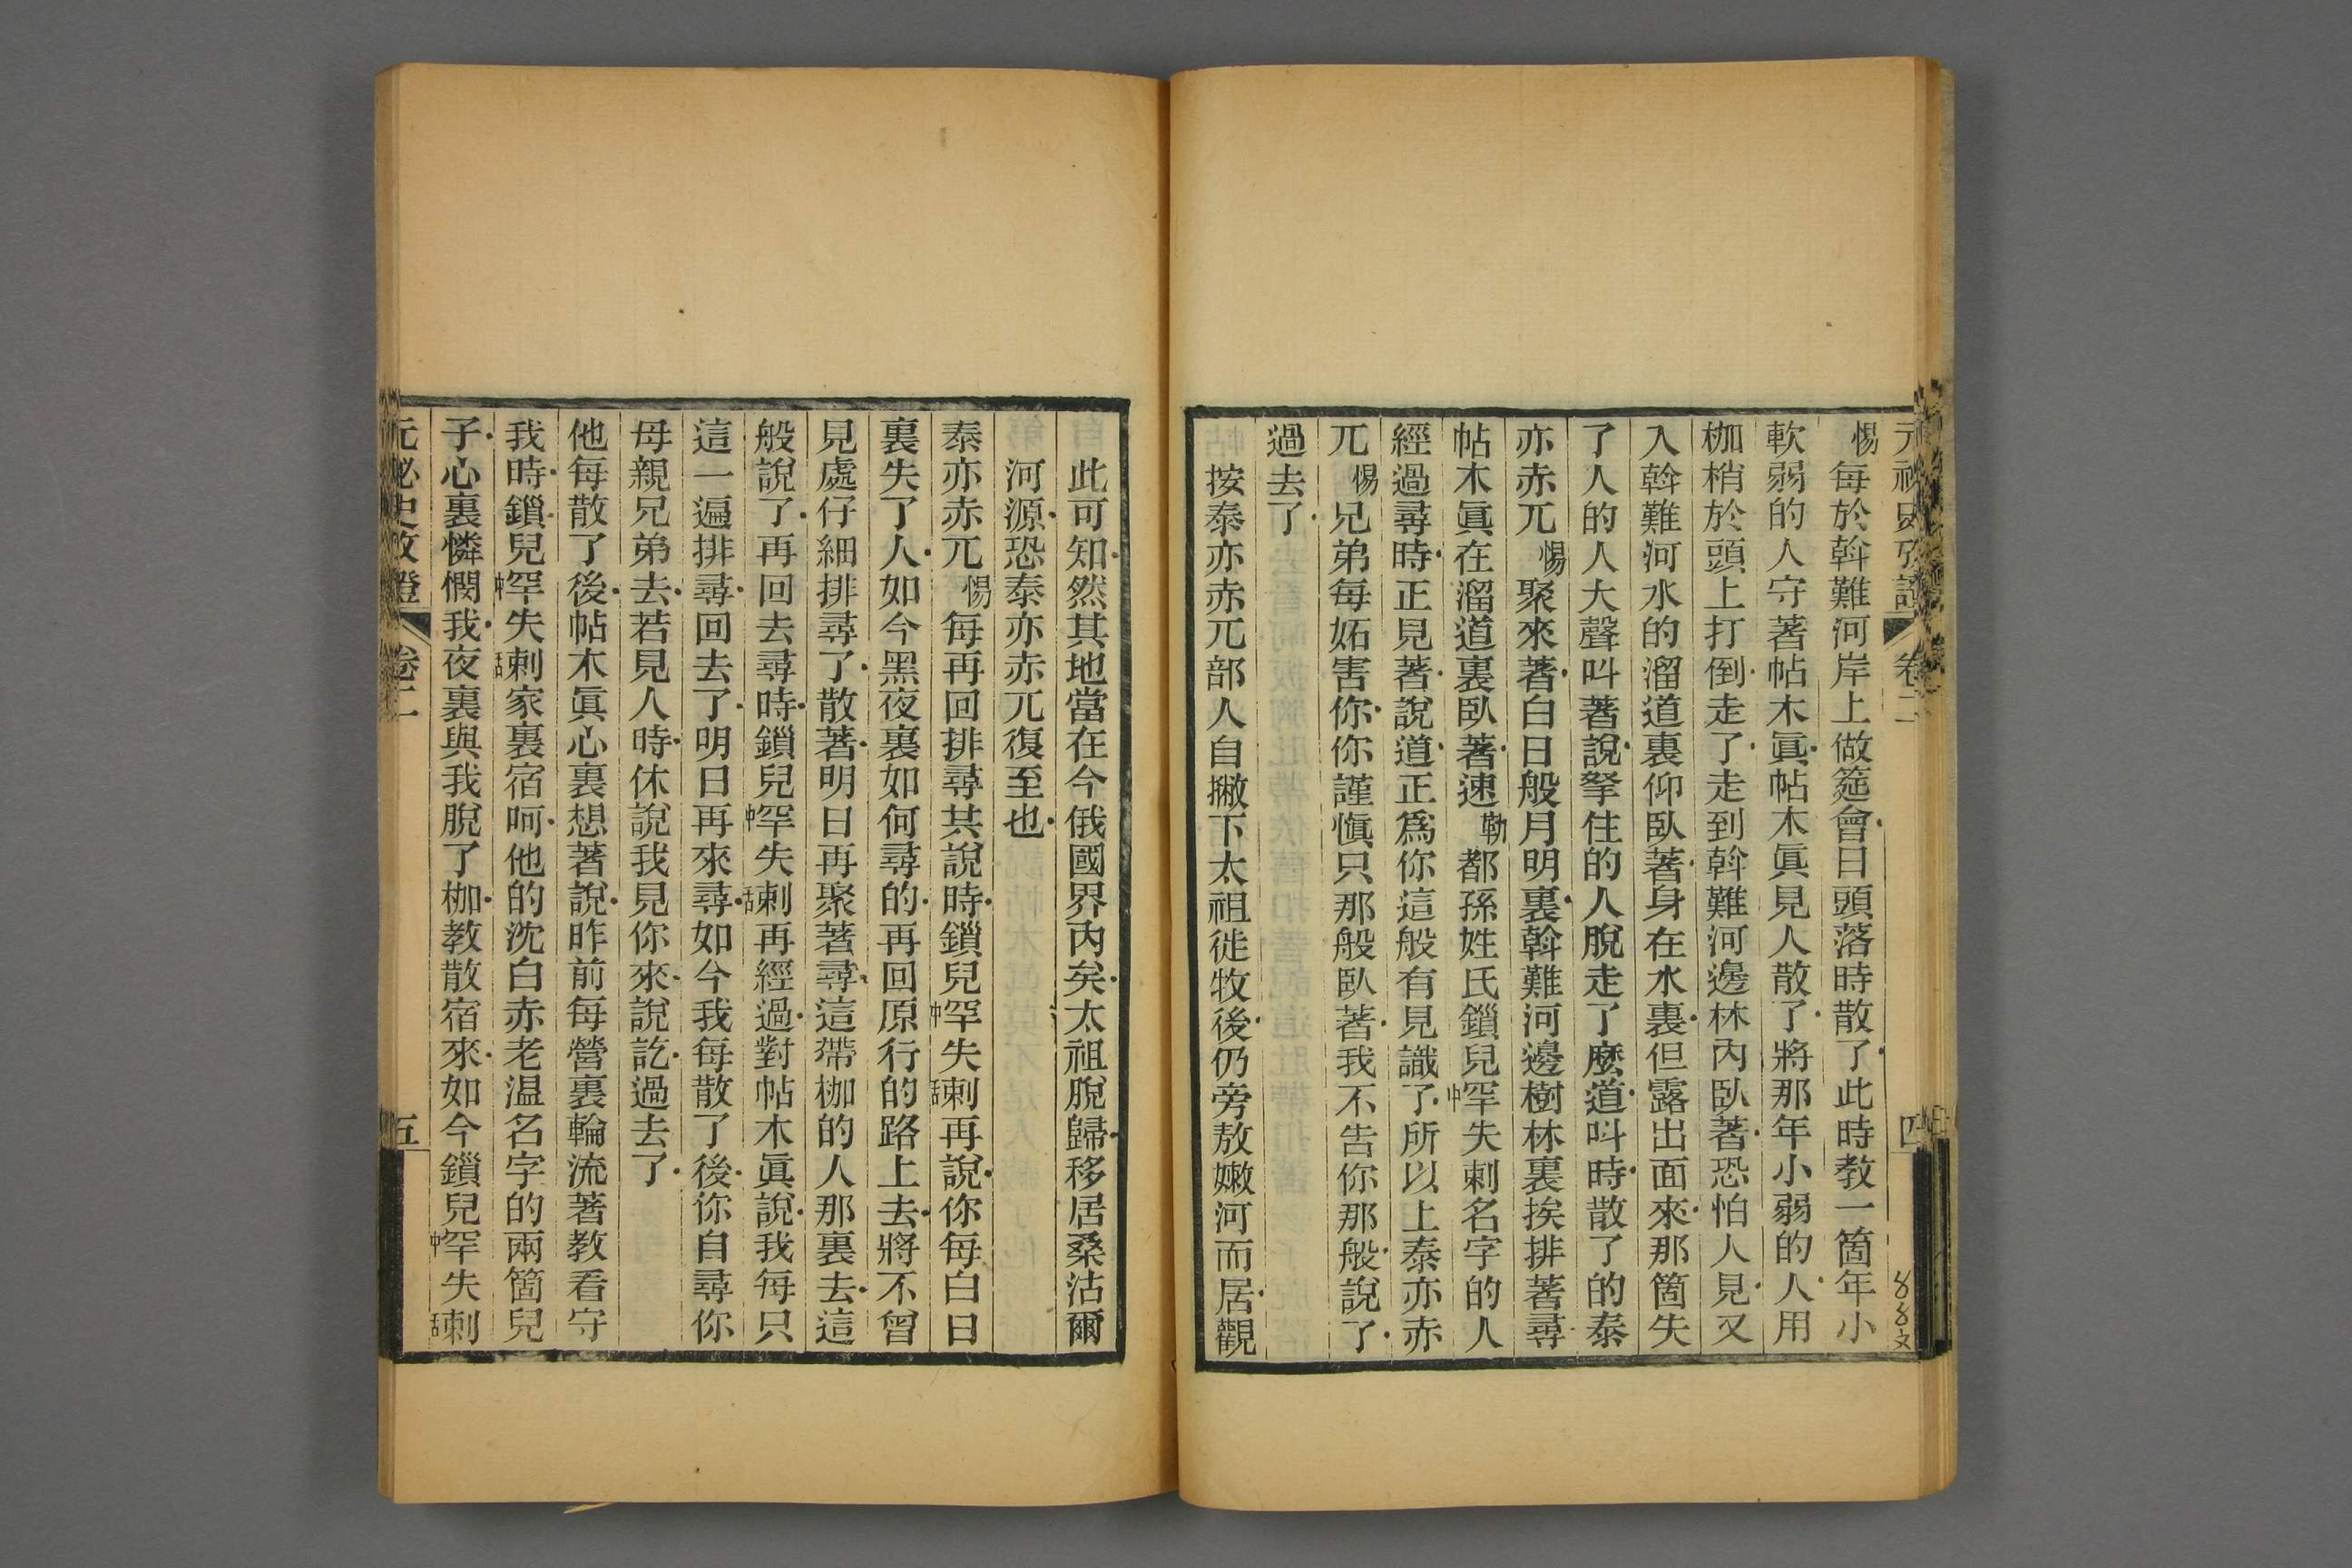 元祕史攷證 卷二 四
惕每於斡難河岸上做筵會日頭落時散了此時教一箇年小
軟弱的人守著帖木眞帖木眞見人散了將那年小弱的人用
枷梢於頭上打倒走了走到斡難河邊林內臥著恐怕人見又
入斡難河水的溜道裏仰臥著身在水裏但露出面來那箇失
了人的人大聲叫著說拏住的人脫走了麼道叫時散了的泰
亦赤兀惕聚來著白日般月明裏斡難河邊樹林裏挨排著尋
帖木眞在溜道裏臥著速勒都孫姓氏鎖兒中罕失剌名字的人
經過尋時正見著說道正爲你這般有見識了所以上泰亦赤
兀惕兄弟每妬害你你謹愼只那般臥著我不告你那般說了
過去了
按泰亦赤兀部人自撇下太祖徙牧後仍旁敖嫩河而居觀
此可知然其地當在今俄國界內矣太祖脫歸移居桑沽爾
河源恐泰亦赤兀復至也
泰亦赤兀惕每再回排尋共說時鎖兒中罕失舌剌再說你每白日
裏失了人如今黑夜裏如何尋的再回原行的路上去將不曾
見處仔細排尋了散著明日再聚著尋這帶枷的人那裏去這
般說了再回去尋時鎖兒中罕失舌剌再經過對帖木眞說我每只
這一遍排尋回去了明日再來尋如今我每散了後你自尋你
母親兄弟去若見人時休說我見你來說訖過去了
他每散了後帖木眞心裏想著說昨前每營裏輪流著教看守
我時鎖兒中罕失舌剌家裏宿呵他的沈白赤老温名字的兩箇兒
子心裏憐憫我夜裏與我脫了枷教散宿來如今鎖兒中罕失舌剌
元祕史攷證 卷二 五